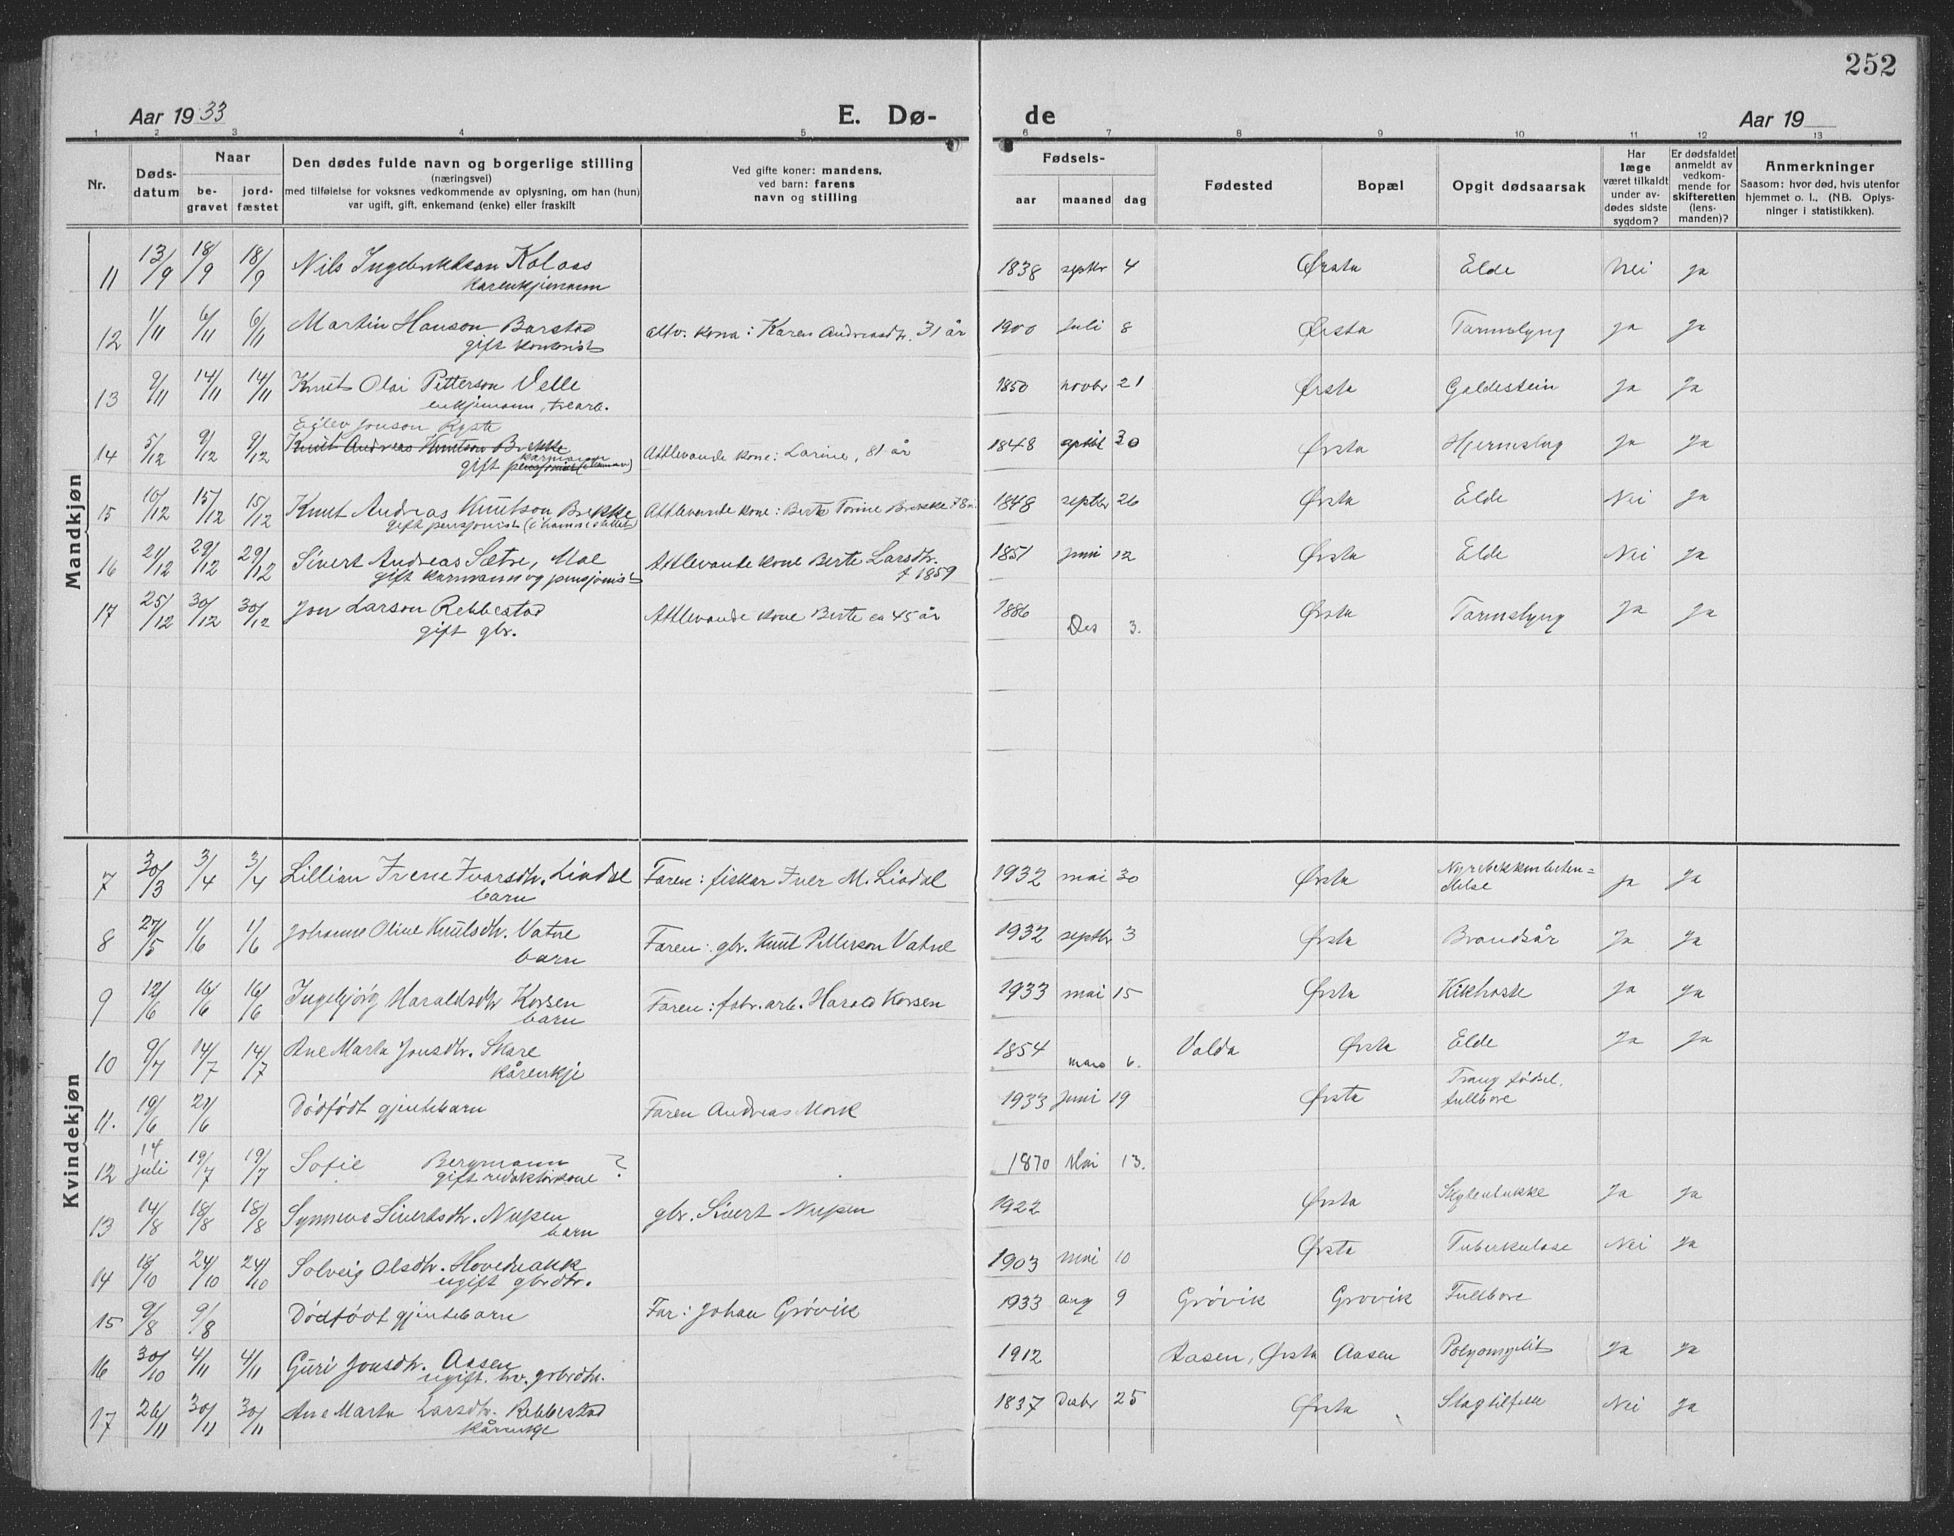 252
Aar 1933
E. Dø-
de
Aar 19
1 2 3 4 5 6 7 8 9 10 11 12 13
Nr.
Døds-
datum
Naar
be-
gravet
jord-
fæstet
Den dødes fulde navn og borgerlige stilling
(næringsvei)
med tilføielse for voksnes vedkommende av oplysning, om han (hun)
var ugift, gift, enkemand (enke) eller fraskilt
Ved gifte koner: mandens,
ved barn: farens
navn og stilling
Fødsels-
aar maaned dag
Fødested
Bopæl
Opgit dødsaarsak
Har
læge
været tilkaldt
under av-
dødes sidste
sygdom?
Er dødsfaldet
anmeldt av
vedkom-
mende for
skifteretten
(lens-
manden)?
Anmerkninger
Saasom: hvor død, hvis utenfor
hjemmet o. l., (NB. Oplys-
ninger i statistikken).
Mandkjøn
11 13/9 18/9 18/9 Nils Kolaas 1838 septbr 4 Ørsta Elde Nei ja
kårenkjemann
12 1/11 6/11 6/11 Martin Hanson Barstad attv. kona: Karen Andreasdtr. 31 år 1900 juli 8 Ørsta Tarmslyng ja ja
gift
13 9/11 14/11 14/11 Knut Olai Petterson Velle 1850 novbr 21 Ørsta Galdestein ja ja
enkjemann, trearb.
Eilev Jonson Ryste
14 5/12 9/12 9/12 Knut Andreas Knutson Brekke Attlevande kone: Larine, 81 år 1848 april 30 Ørsta Hjerneslag ja ja
kårmann
gift pensjonist
15 10/12 15/12 15/12 Knut Andreas Knutson Brekke Attlevande kone: Berte Torine Brekke 78 1848 septbr 26 Ørsta Elde Nei ja
gift pensjonist
16 21/12 29/12 29/12 Sivert Andreas Sætre, Mæle Attlevande kone Berte Larsdtr. 1851 juni 12 Ørsta Elde Nei ja
gift kårmann og pensjonist f 1859
17 25/12 30/12 30/12 Jon Larson Rebbestad Attlevande kone Berte ca 45 år 1886 Des 3. Ørsta Tarmslyng ja ja
gift gbr.
Kvindekjøn
7 30/3 3/4 3/4 Lillian Irene Ivarsdtr. Liadal Faren: fiskar Iver M. Liadal 1932 mai 30 Ørsta Nyrebekkenbeten=
delse ja ja
barn
8 27/5 1/6 1/6 Johanne Oline Knutsdtr. Vatne Faren: gbr. Knut Petterson Vatne 1932 septbr 3 Ørsta Brandsår ja ja
barn
9 12/6 16/6 16/6 Ingebjörg Haraldsdtr Korsen Faren: fabr. arb. Harald Korsen 1933 mai 15 Ørsta Kikhoste ja ja
barn
10 9/7 14/7 14/7 Ane Marta Jonsdtr. Skare 1854 mars 6. Volda Ørsta Elde ja ja
kårenkje
11. 19/6 21/6 Dödfödt gjentebarn Faren Andreas Mork 1933 juni 19 Ørsta Trang födsel,
fullbore
12 14 juli 19/7 19/7 Sofie Bergmann ? 1870 Mai 13.
gift redaktörkone
13 14/8 18/8 18/8 Synnöve Sivertsdtr. Nupen gbr. Sivert Nupen 1922 Ørsta ja ja
barn
14 18/10 24/10 24/10 Solveig Olsdtr. Hovdenakk 1903 mai 10 Ørsta Tuberkulose Nei ja
ugift gbrdtr.
15 9/8 9/8 Dödfödt gjentebarn Far: Johan Grövik 1933 aug 9 Grövik Grovik Fullbore
16 30/10 4/11 4/11 Guri Jonsdtr. Aasen 1912 Aasen, Ørsta Aasen Polyomyelit ja ja
ugift. hv. grbrdtr.
17 26/11 30/11 30/11 Ane Marta Larsdtr. Rebbestad 1837 Desbr 25 Ørsta Slagtilfelle Nei ja
kårenkje